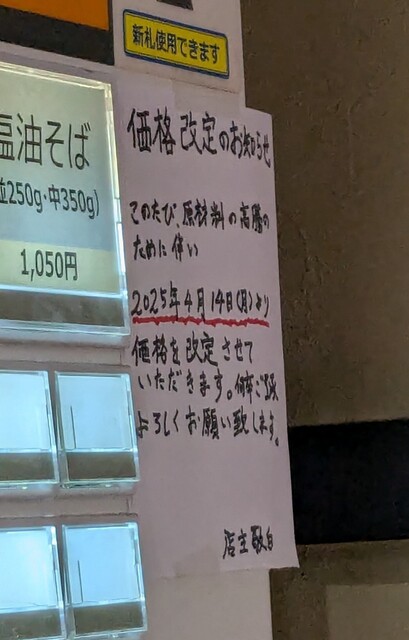 新札使用できます
塩油そば
並250g・中350g)
1,050円
価格改定のお知らせ
このたび、原材料の高騰の
ために伴い
2025年4月14日(月)より
価格を改定させて
いただきます。何卒ご理解
よろしくお願い致します。
店主敬白